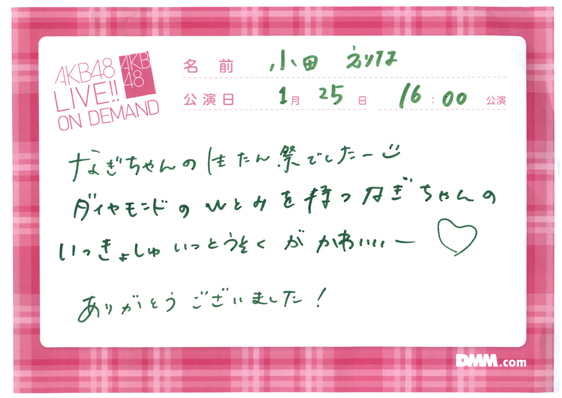 AKB48
LIVE!!
ON DEMAND
AKB
48
名前 小田 えりな
公演日 1月 25日 16:00 公演
なぎちゃんの生たん祭でしたー
ダイヤモンドのひとみを持つなぎちゃんの
いっきょしゅいっとうそくがかわいいー♡
ありがとうございました!
DMM.com